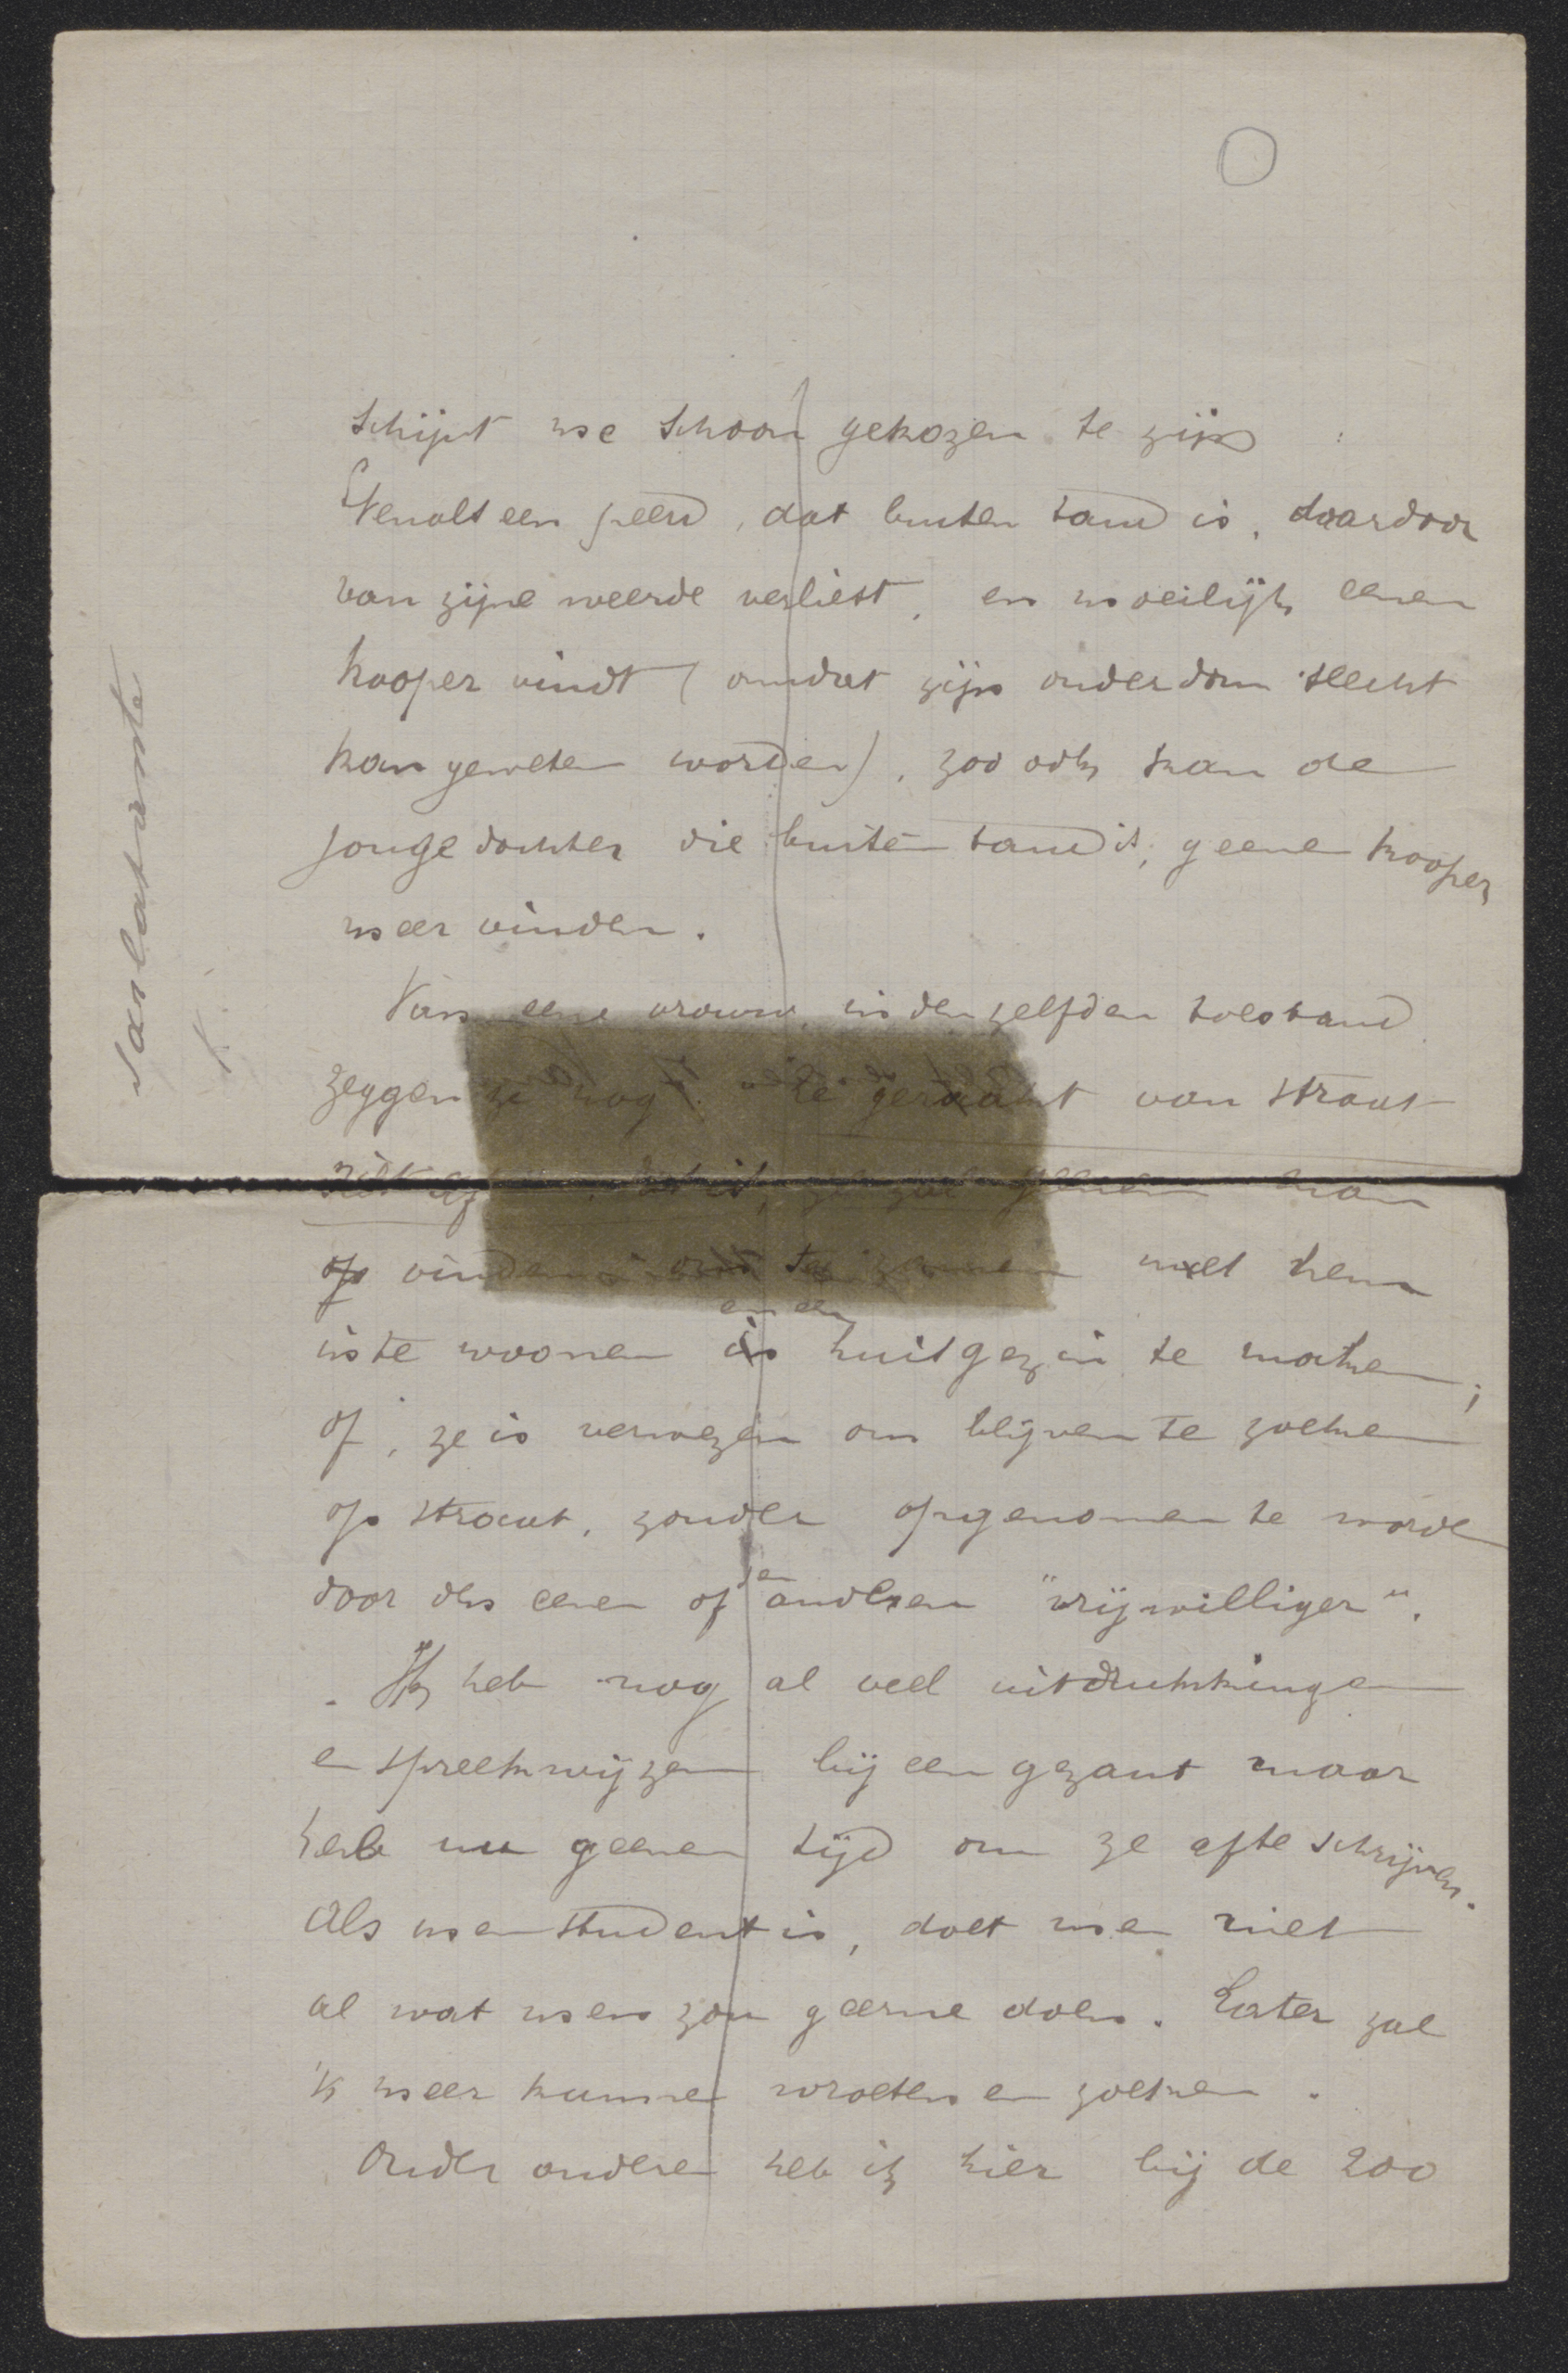 schijnt me schoon gekozen te zijn :
Evenals een peerd, dat buiten tand is, daardoor
van zijne weerde verliest, en moeilijk eenen
kooper vindt (omdat zijn ouderdom slecht
kan geweten worden), zoo ook kan de
jonge dochter die buiten tand is, geenen kooper
meer vinden.
Van eene vrouw in den zelfden toestand
zeggen ze nog: "ze geraakt van straat
niet af", dat is, ze zal geenen man
op vinden om te zamen met hem
in te woonen en een huisgezin te maken;
of, ze is verwezen om blijven te zoeken
op straat, zonder opgenomen te worden
door den eenen of den anderen "vrijwilliger".
Ik heb nog al veel uitdrukkingen
en spreekwijzen bij een gezant maar
heb nu geenen tijd om ze af te schrijven.
Als men student is, doet men niet
al wat men zou geerne doen. Later zal
'k meer kunnen wroeten en zoeken.
Onder anderen heb ik hier bij de 200